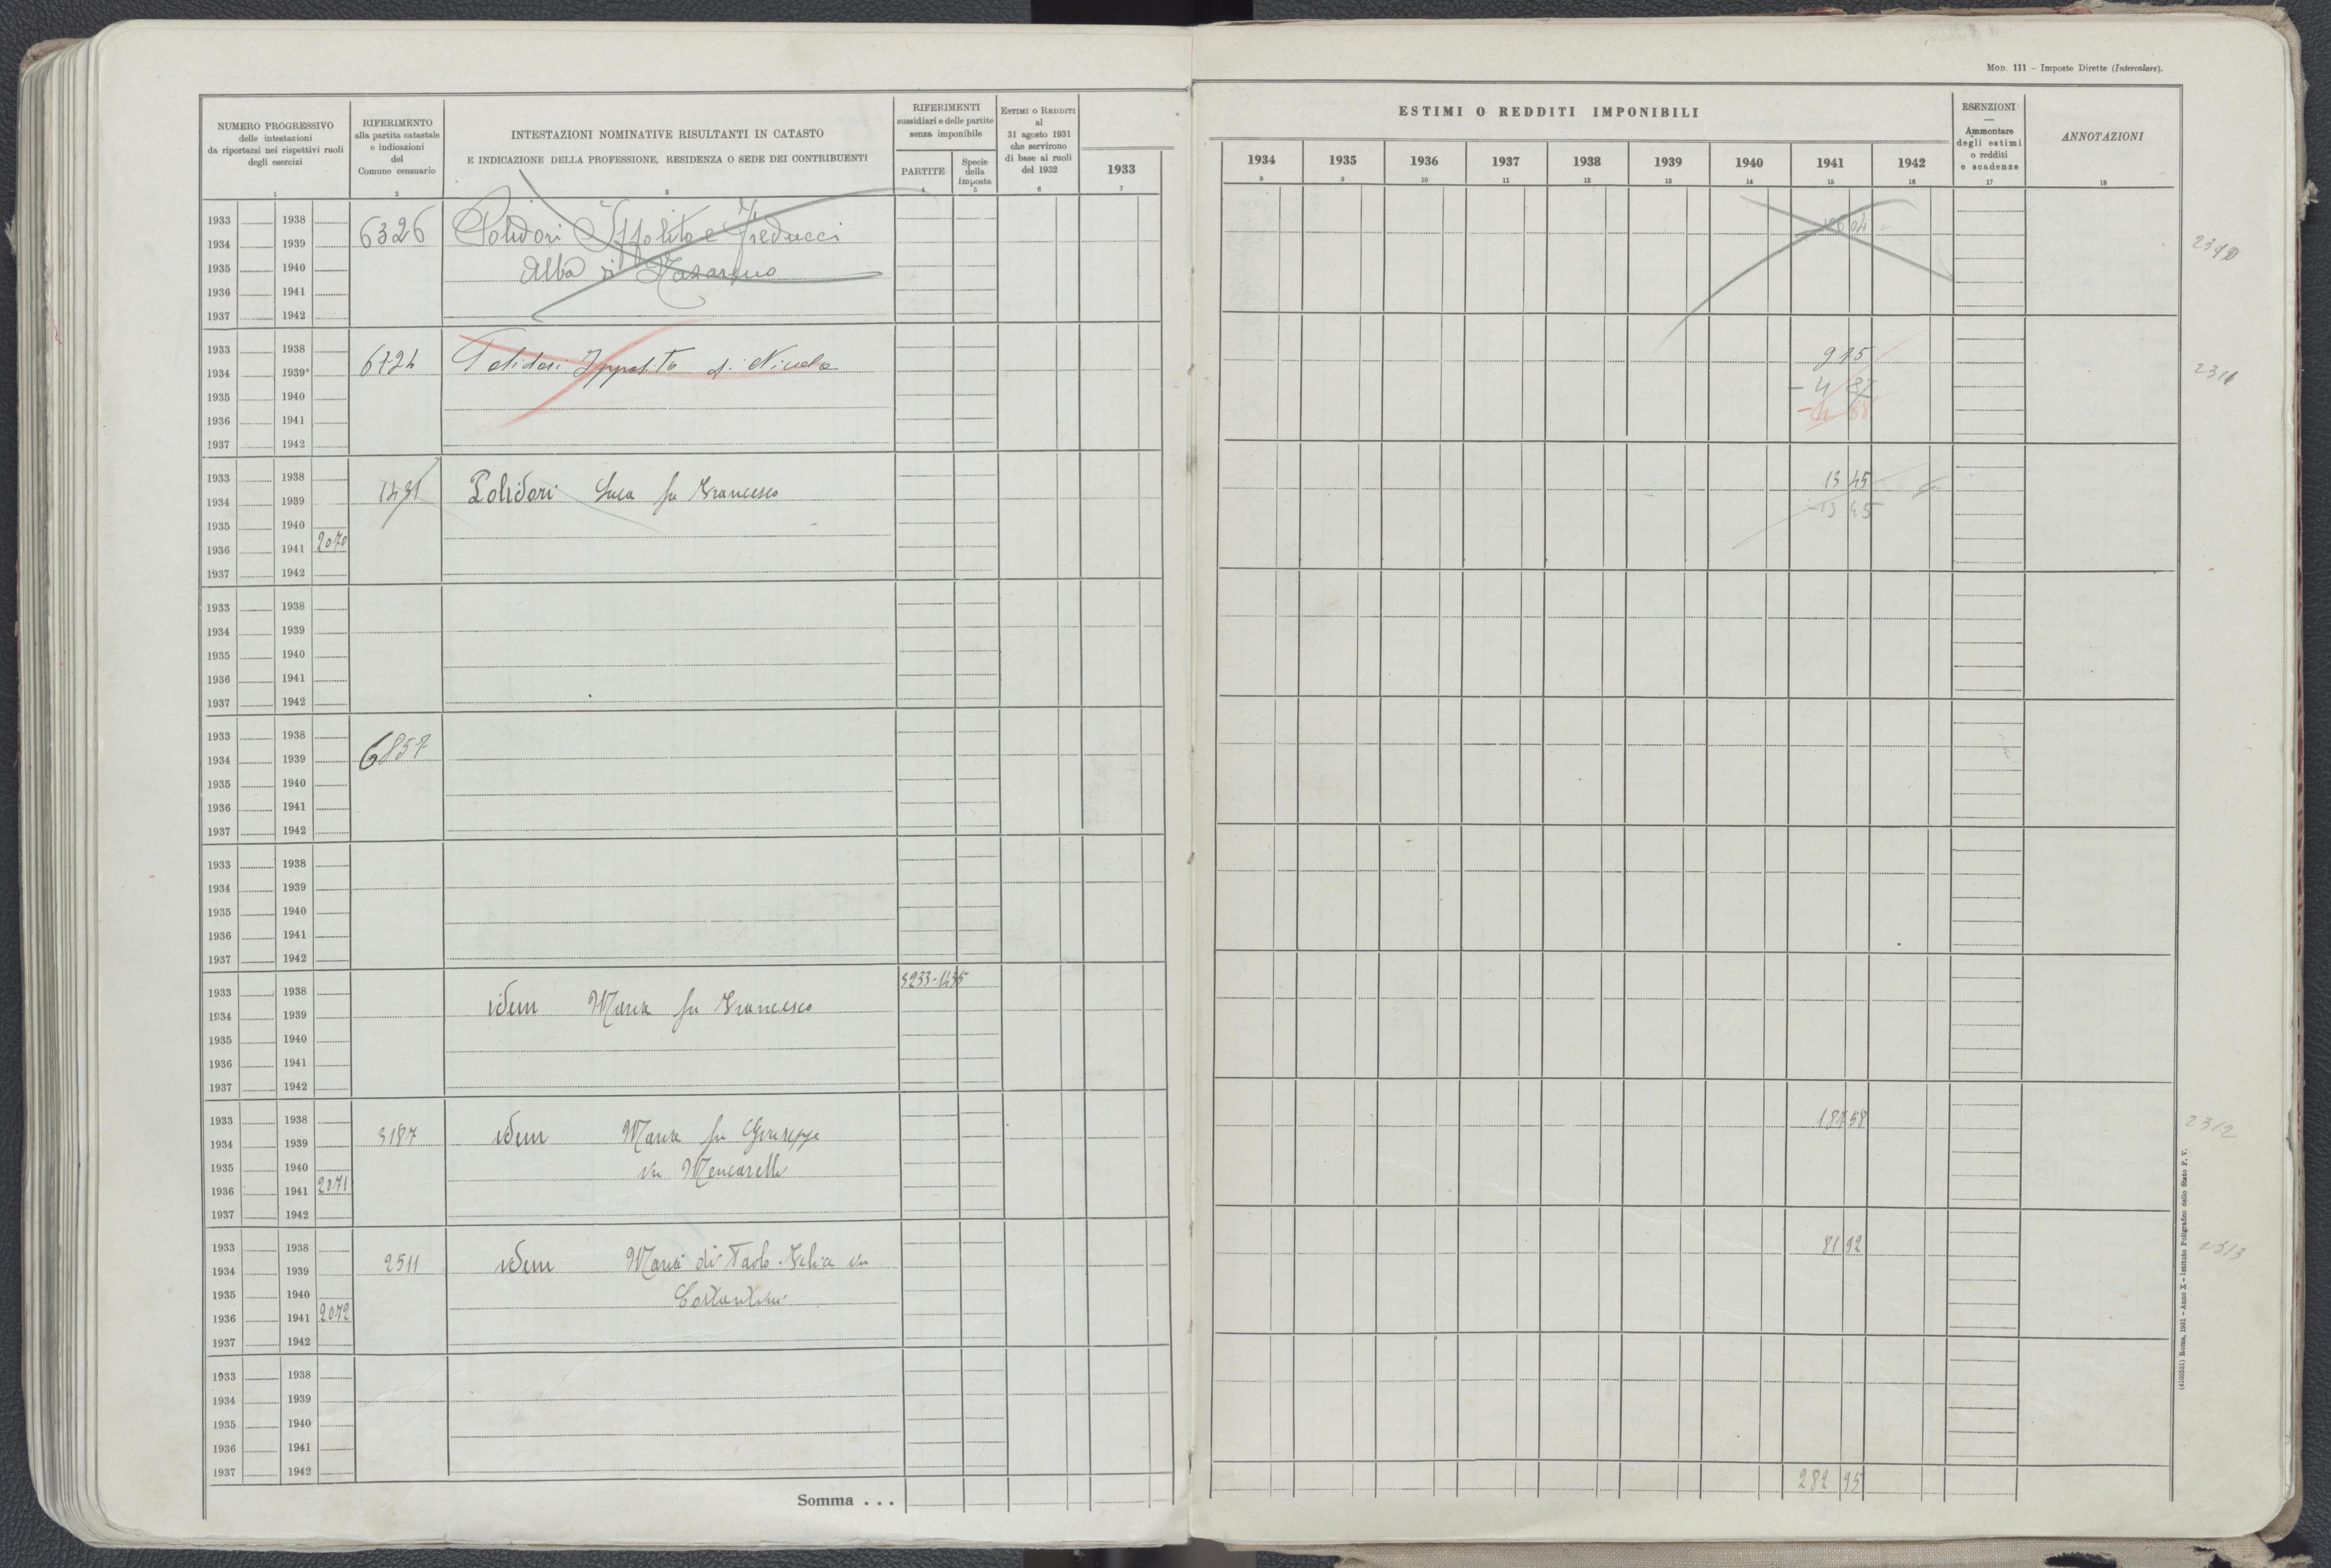 Mod. 111 – Imposte Dirette (Intercalare).
NUMERO PROGRESSIVO
delle intestazioni
da riportarsi nei rispettivi ruoli
degli esercizi
1
RIFERIMENTO
alla partita catastale
e indicazioni
del
Comune censuario
2
INTESTAZIONI NOMINATIVE RISULTANTI IN CATASTO
E INDICAZIONE DELLA PROFESSIONE, RESIDENZA O SEDE DEI CONTRIBUENTI
3
RIFERIMENTI
sussidiari e delle partite
senza imponibile
PARTITE
4
Specie
della
imposta
5
Estimi o Redditi
al
31 agosto 1931
che servirono
di base ai ruoli
del 1932
6
1933
7
ESTIMI O REDDITI IMPONIBILI
1934 1935 1936 1937 1938 1939 1940 1941 1942
8 9 10 11 12 13 14 15 16
ESENZIONI
—
Ammontare
degli estimi
o redditi
e scadenze
17
ANNOTAZIONI
18
1933 1938
1934 1939 6326 Polidori Ippolito e Freducci
1935 1940 Alba di Nazareno
1936 1941
1937 1942
1933 1938 9 75
1934 1939 Polidori Ippolito di Nicola 2311
– 4 87
1935 1940
– 4 88
1936 1941
1937 1942
1933 1938 13 45
1934 1939 1431 Polidori Luca fu Francesco
13 45
1935 1940
1936 1941 2070
1937 1942
1933 1938
1934 1939
1935 1940
1936 1941
1937 1942
1933 1938
1934 1939 6857
1935 1940
1936 1941
1937 1942
1933 1938
1934 1939
1935 1940
1936 1941
1937 1942
3233-1435
1933 1938
1934 1939 idem Maria fu Francesco
1935 1940
1936 1941
1937 1942
1933 1938 187 58 2312
1934 1939 3187 idem Maria fu Giuseppe
1935 1940 in Mencarelli
1936 1941 2071
1937 1942
1933 1938 81 92 2313
1934 1939 2511 idem Maria di Paolo Felice in
1935 1940 Costantini
1936 1941 2072
1937 1942
1933 1938
1934 1939
1935 1940
1936 1941
1937 1942
Somma . . . 282 95
Roma, 1931 – Anno X – Istituto Poligrafico dello Stato P. V.